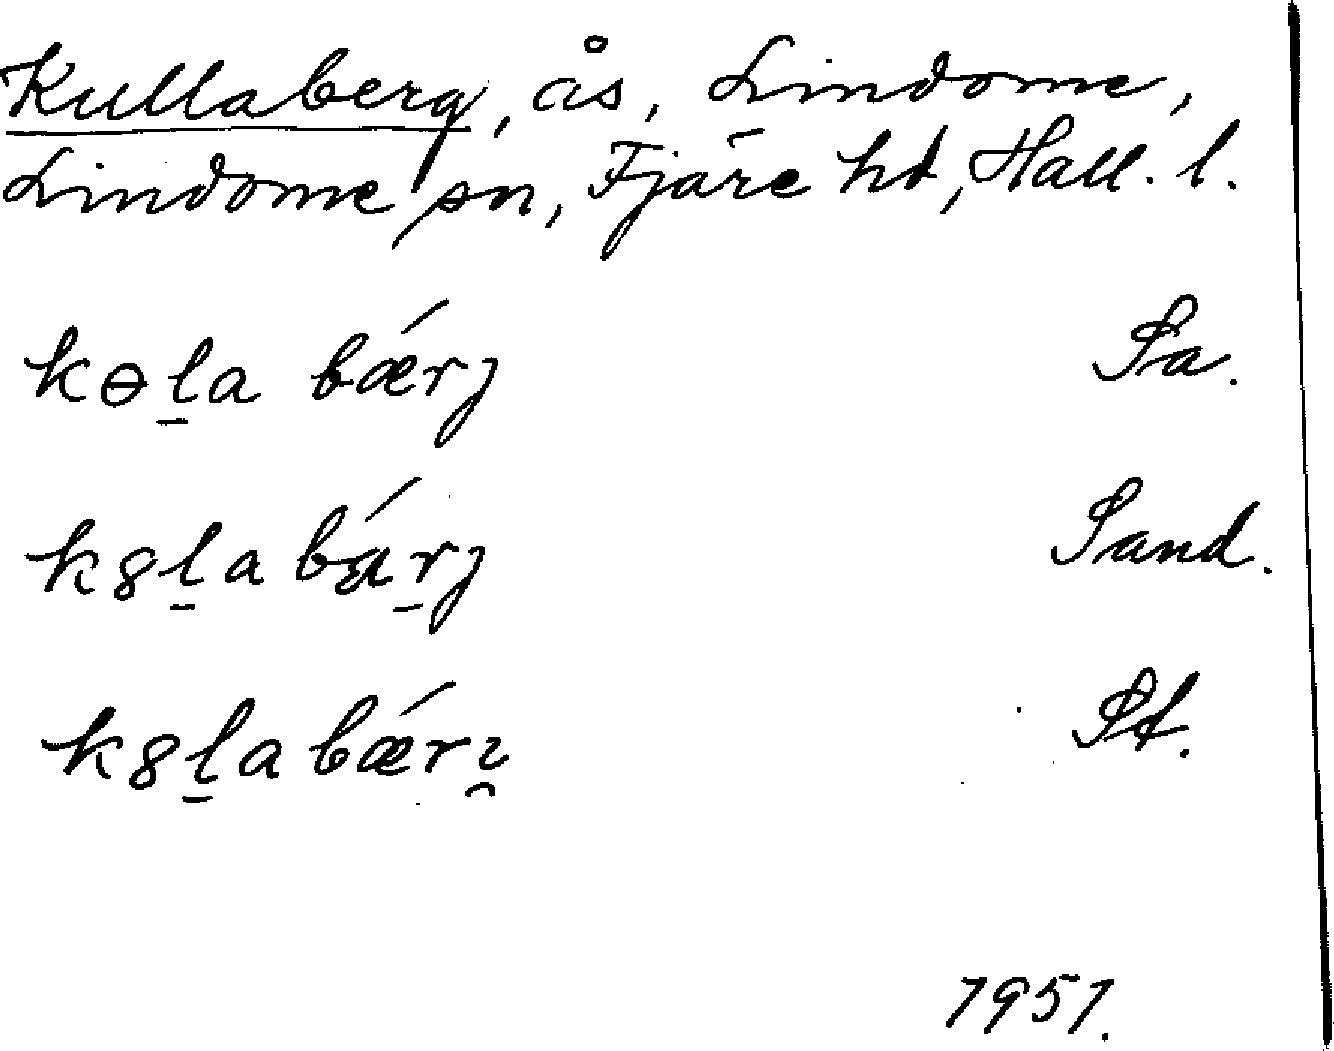 Kullaberg, ås, Lindome,
Lindome sn, Fjäre hd, Hall. l.
kɵl̠a bǽrȷ Sa.
k8l̠a bár̠ȷ Sand.
k8l̠a bǽrı̯ St.
1951.